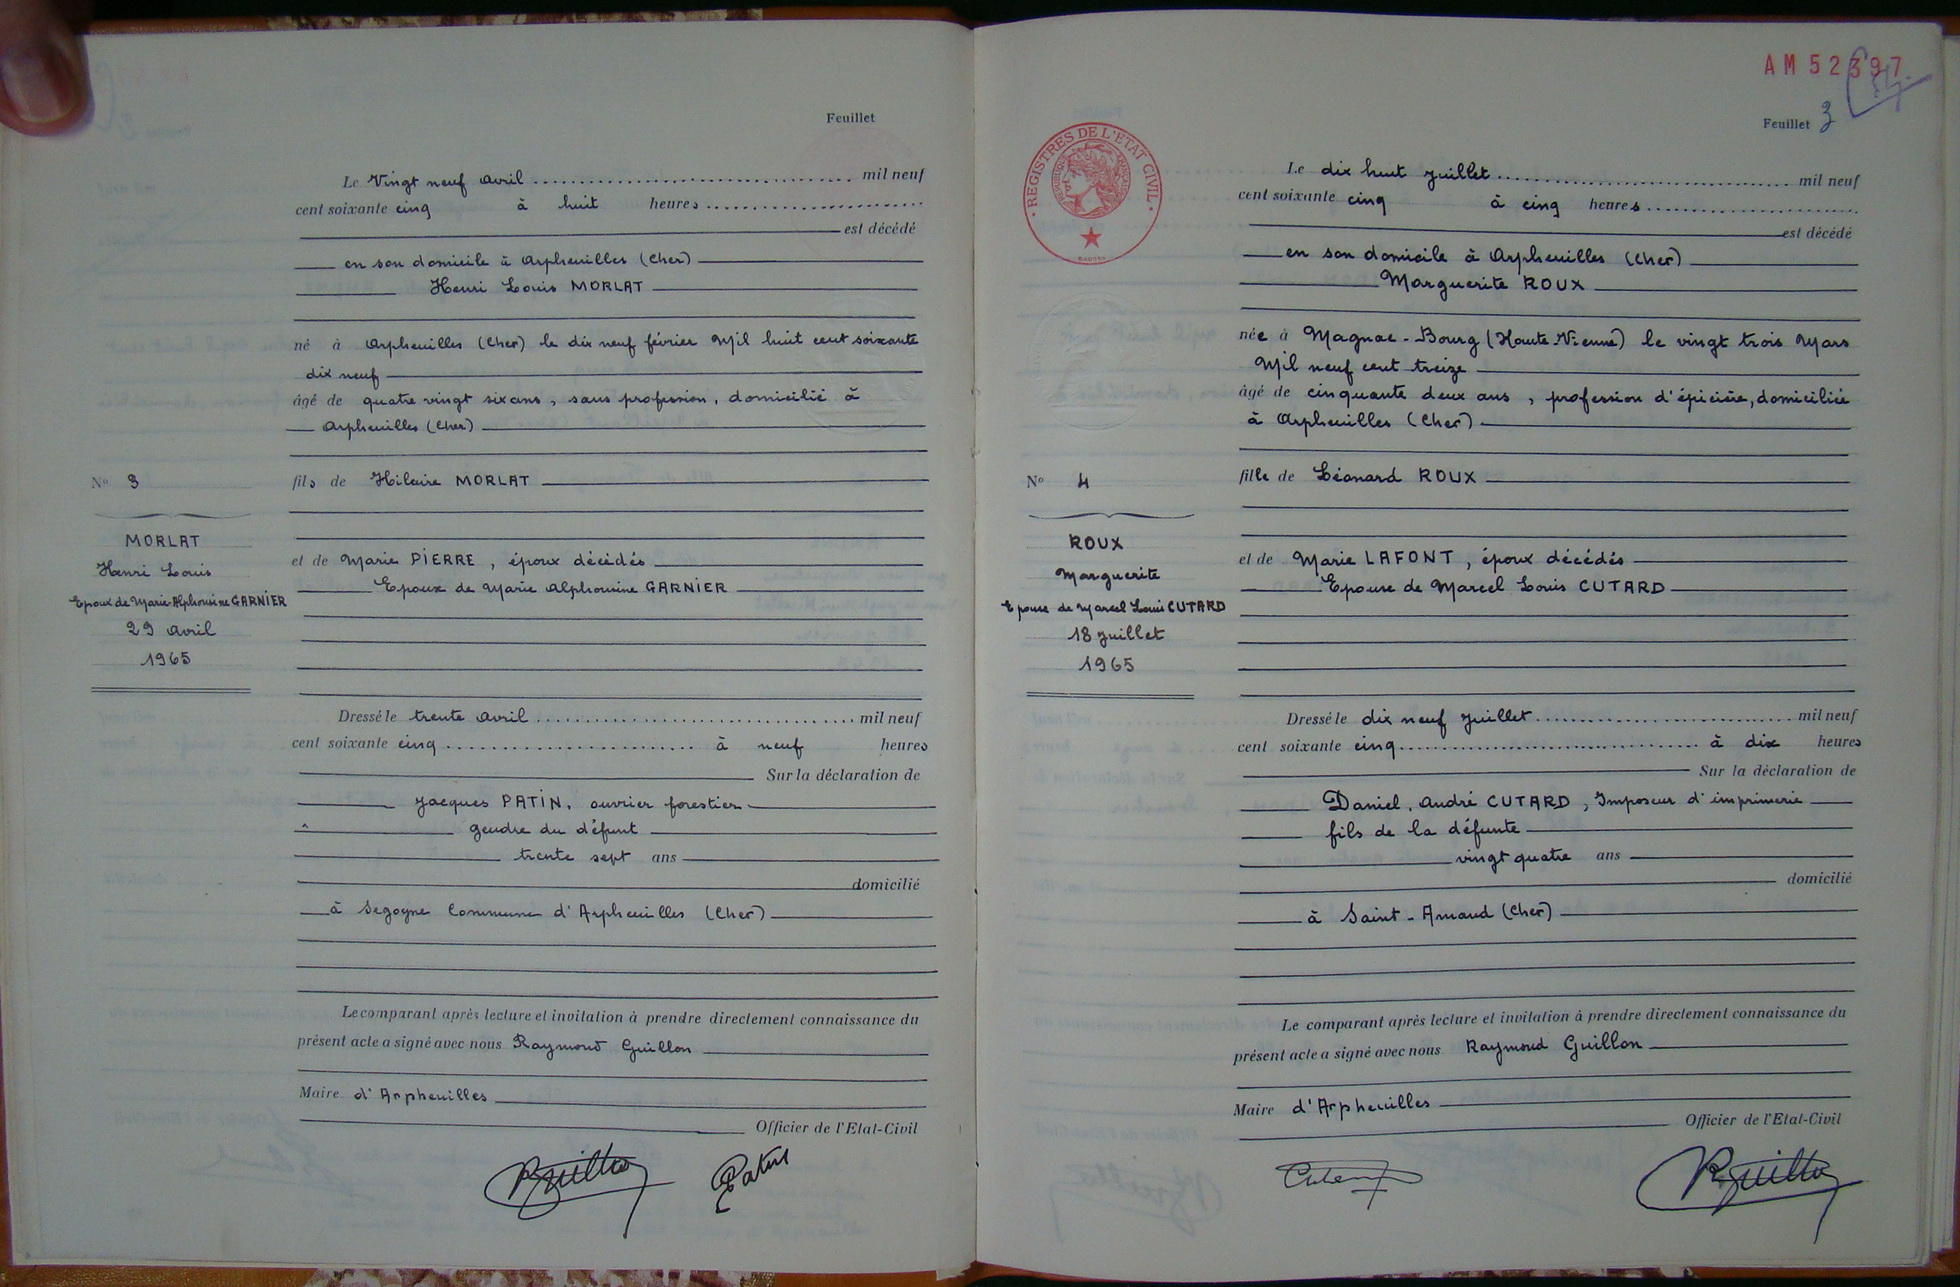 Feuillet
Le Vingt neuf avril mil neuf
cent soixante cinq à huit heures
est décédé
en son domicile à Arpheuilles (Cher)
Henri Louis MORLAT
né à Arpheuilles (Cher) le dix neuf février Mil huit cent soixante
dix neuf
âgé de quatre vingt six ans, sans profession, domicilié à
Arpheuilles (Cher)
fils de Hilaire MORLAT
et de Marie PIERRE, époux décédés
Epoux de Marie Alphonsine GARNIER
N° 3
MORLAT
Henri Louis
Epoux de Marie-Alphonsine GARNIER
29 avril
1965
Dressé le trente avril mil neuf
cent soixante cinq à neuf heures
Sur la déclaration de
Jacques PATIN, ouvrier forestier
gendre du défunt
trente sept ans
domicilié
à Segogne Commune d'Arpheuilles (Cher)
Le comparant après lecture et invitation à prendre directement connaissance du
présent acte a signé avec nous Raymond Guillon
Maire d'Arpheuilles
Officier de l'Etat-Civil
RGuillon Patin
AM 52397
Feuillet 3
REGISTRES DE L'ETAT CIVIL
Le dix huit Juillet mil neuf
cent soixante cinq à cinq heures
est décédé
en son domicile à Arpheuilles (Cher)
Marguerite ROUX
née à Magnac-Bourg (Haute-Vienne) le vingt trois Mars
Mil neuf cent treize
âgé de cinquante deux ans, profession d'épicière, domiciliée
à Arpheuilles (Cher)
fille de Léonard ROUX
et de Marie LAFONT, époux décédés
Epouse de Marcel Louis CUTARD
N° 4
ROUX
Marguerite
Epouse de Marcel Louis CUTARD
18 Juillet
1965
Dressé le dix neuf Juillet mil neuf
cent soixante cinq à dix heures
Sur la déclaration de
Daniel, André CUTARD, Imposeur d'imprimerie
fils de la défunte
vingt quatre ans
domicilié
à Saint-Amand (Cher)
Le comparant après lecture et invitation à prendre directement connaissance du
présent acte a signé avec nous Raymond Guillon
Maire d'Arpheuilles
Officier de l'Etat-Civil
RGuillon